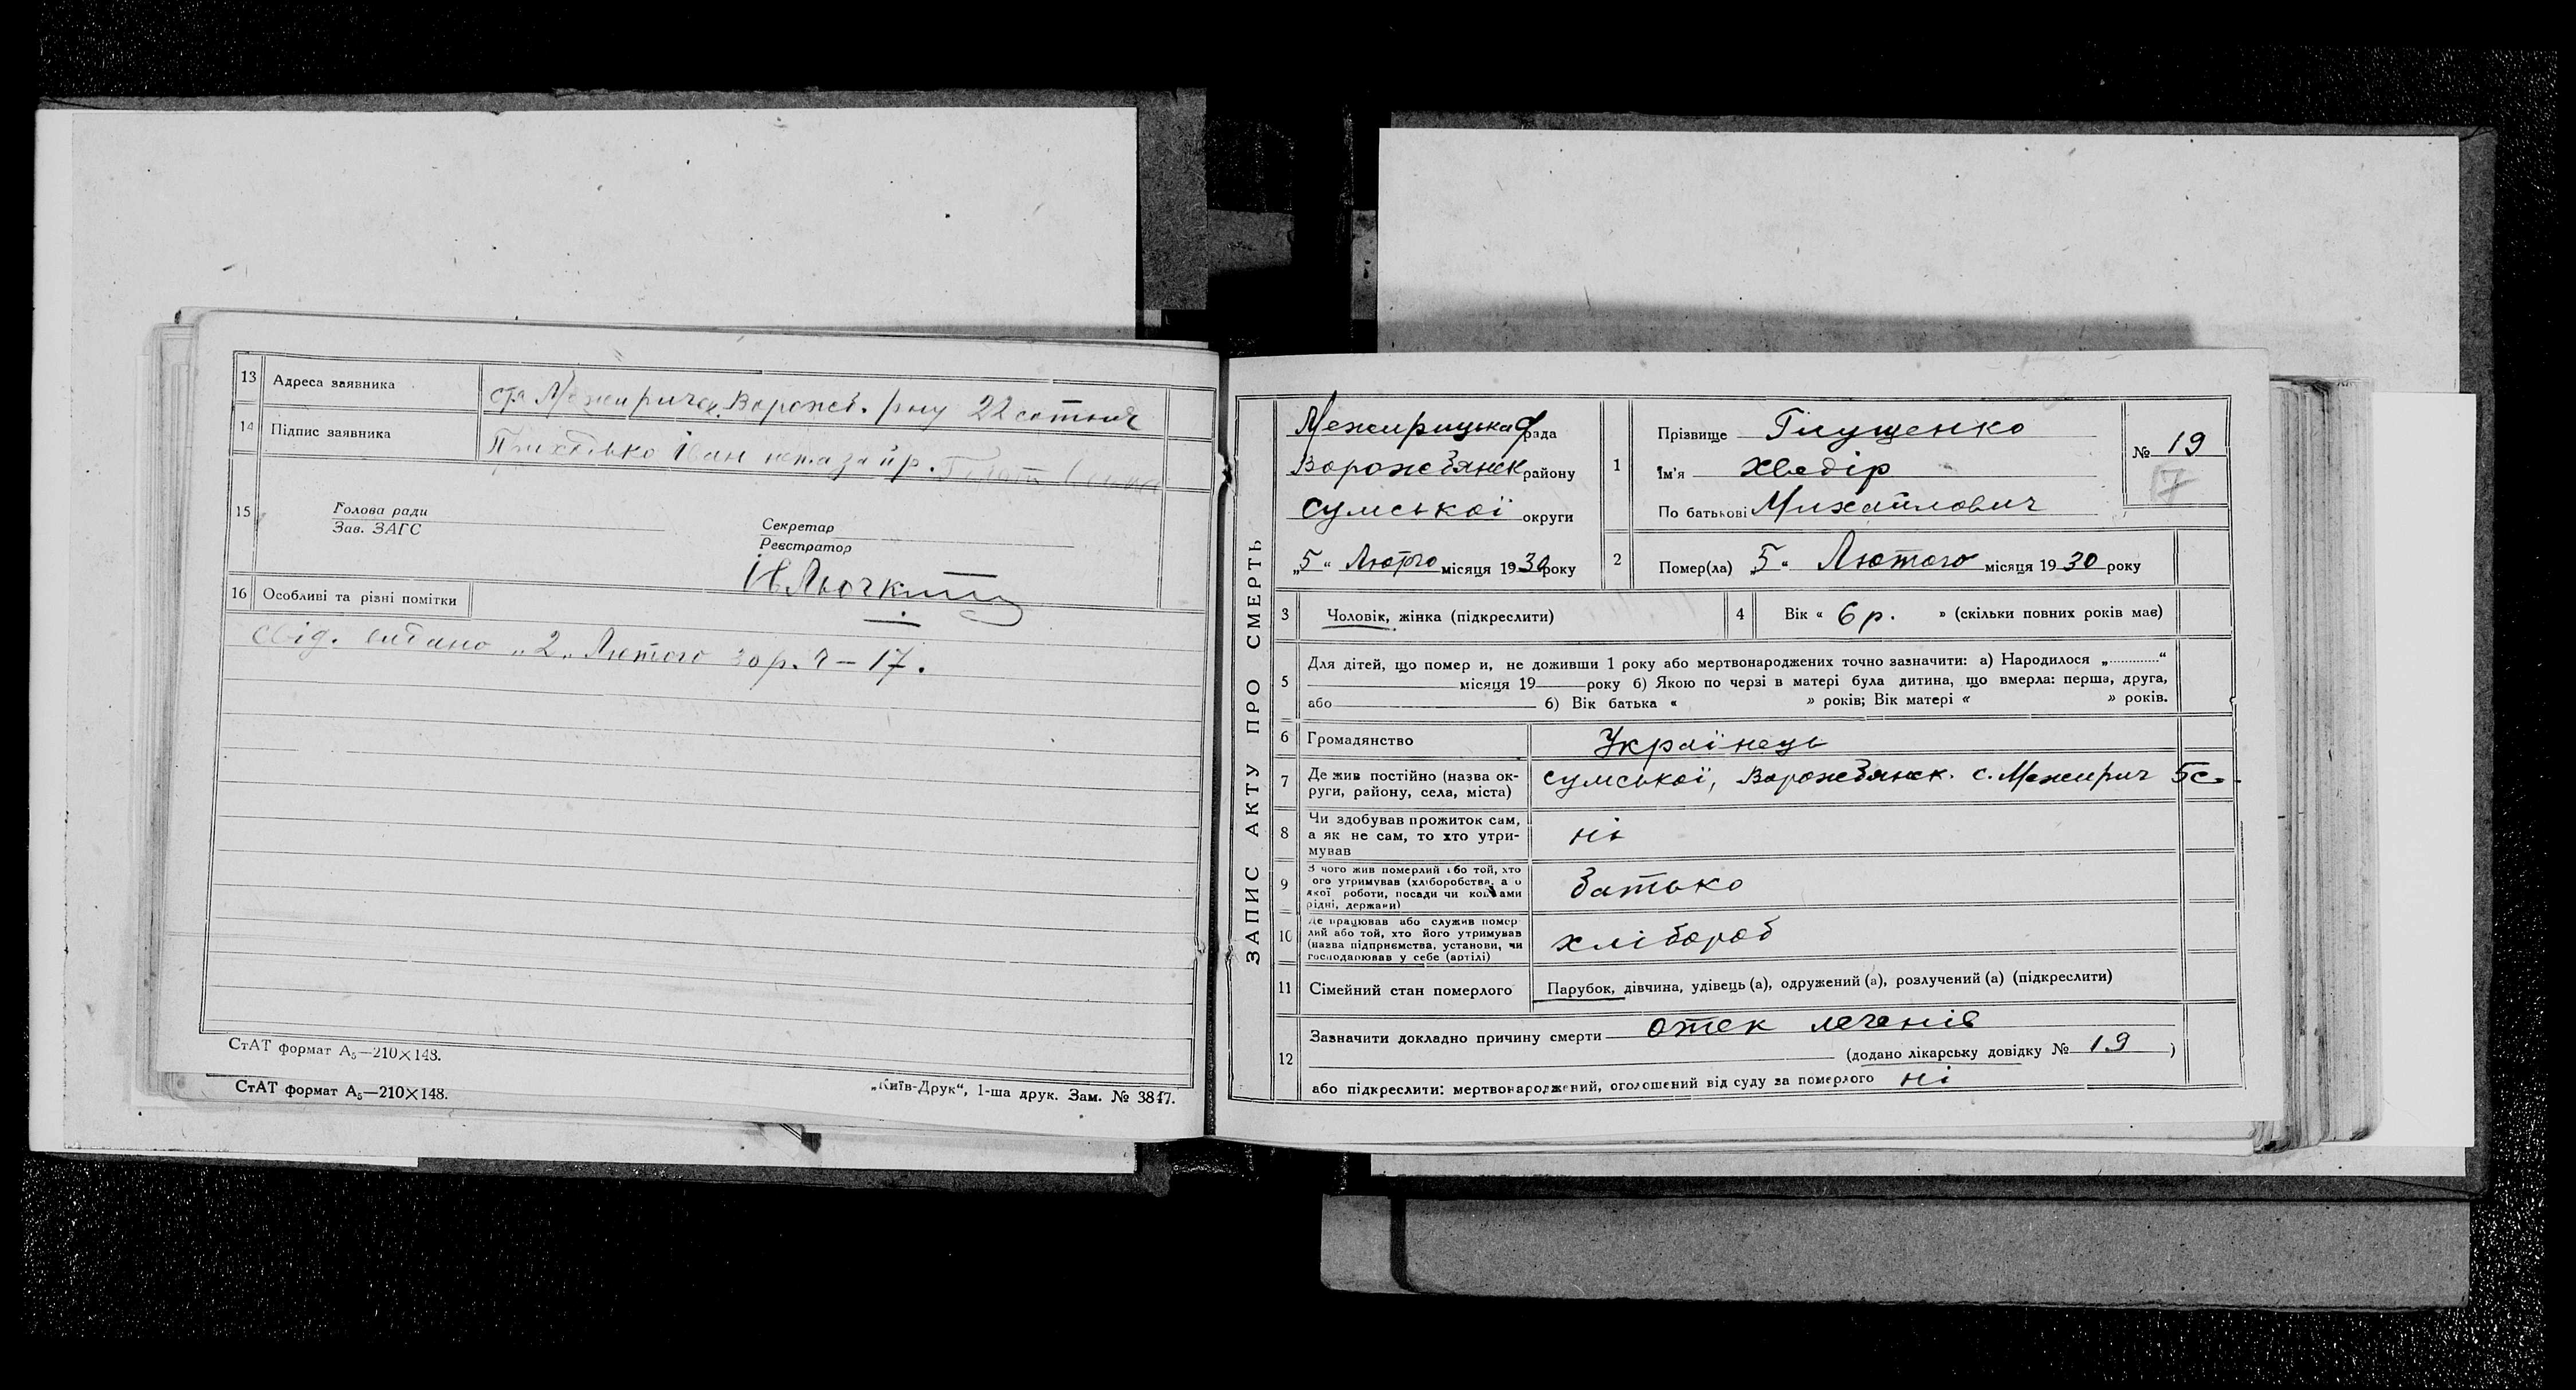 13 Адреса заявника ст. Межиричсх. Ворожб. р-ну 22 сотня
14 Підпис заявника Приходько Іван непаза й р.
15 Голова ради
Зав. ЗАГС
Секретар
Реєстратор
16 Особливі та різні помітки
Свід. видано „2„ Лютого 30 р. Ч – 17.
СтАТ формат А₅—210×148.
СтАТ формат А₅—210×148. „Київ-Друк“, 1-ша друк. Зам. № 3817.
ЗАПИС АКТУ ПРО СМЕРТЬ
Межирицька рада
Ворожбянск району
Сумської округи
„5“ Лютого місяця 1930 року
1 Прізвище Глущенко
Їм'я Хведір
По батькові Михайлович
№ 19
17
2 Помер(ла) „5“ Лютого місяця 1930 року
3 Чоловік, жінка (підкреслити)
4 Вік « 6 р. » (скільки повних років має)
5 Для дітей, що помер и, не доживши 1 року або мертвонароджених точно зазначити: а) Народилося „............“
місяця 19 року б) Якою по черзі в матері була дитина, що вмерла: перша, друга,
або б) Вік батька « » років; Вік матері « » років.
6 Громадянство Українець
7 Де жив постійно (назва ок-
руги, району, села, міста) Сумської, Ворожбянск. с. Межирич 5 с.
8 Чи здобував прожиток сам,
а як не сам, то хто утри-
мував ні
9 З чого жив померлий або той, хто
ого утримував (хліборобства, а о
якої роботи, посади чи коштами
рідні, держави) батько
10 Де працював або служив помер
лий або той, хто його утримував
(назва підприємства, установи, чи
господарював у себе (артілі) хлібороб
11 Сімейний стан померлого Парубок, дівчина, удівець (а), одружений (а), розлучений (а) (підкреслити)
12 Зазначити докладно причину смерти отек легенів
(додано лікарську довідку № 19 )
або підкреслити: мертвонароджений, оголошений від суду за померлого ні